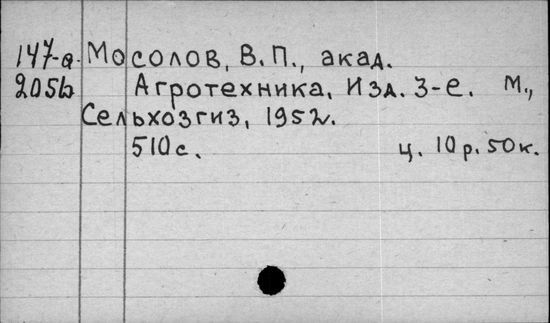 147-а Мосолов, В.П., акад.
205ь Агротехника. Изд. 3-е. М.,
Сельхозгиз, 1952.
510с. ц. 10р. 50к.